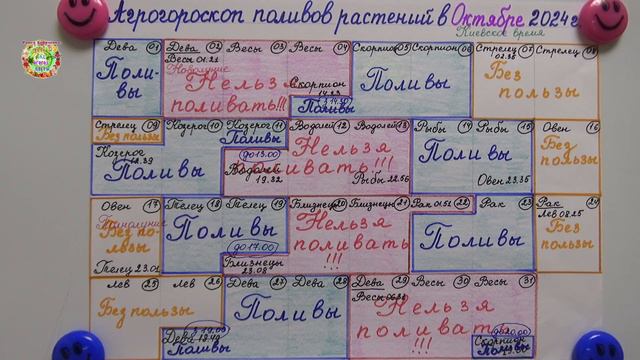 Агрогороскоп поливов растений в Октябре 2024 г
Киевское время
Дева 01
Поли-
вы
Дева 02 Весы 03 Весы 04
Весы 01.21
Новолуние
Нельзя
поливать!!!
Скорпион
14.23
Поливы
Скорпион 05 Скорпион 06
Поливы
Стрелец 07 Стрелец 08
02.35
Без
пользы
Стрелец 09
Без пользы
Козерог
12.39
Козерог 10 Козерог 11
Поливы
Поливы
до 13.00
Водолей
19.32
Водолей 12 Водолей 13
Нельзя
поливать!!!
Рыбы 22.56
Рыбы 14 Рыбы 15
Поливы
Овен 23.35
Овен 16
Без
пользы
Овен 17
Полнолуние
Без по-
льзы
Телец 23.01
Телец 18 Телец 19
Поливы
до 17.00
Близнецы
23.08
Близнецы 20 Близнецы 21
Нельзя
поливать
!!!
Рак 01.51 22 Рак 23
Поливы
Рак 24
Лев 08.25
Без
пользы
Лев 25 Лев 26
Без пользы
с 19.00
Дева 19.49
Поливы
Дева 27 Дева 28
Поливы
Дева 29 Весы 30 Весы 31
Нельзя
поливать
!!!
до 20.00
Скорпион
Поливы